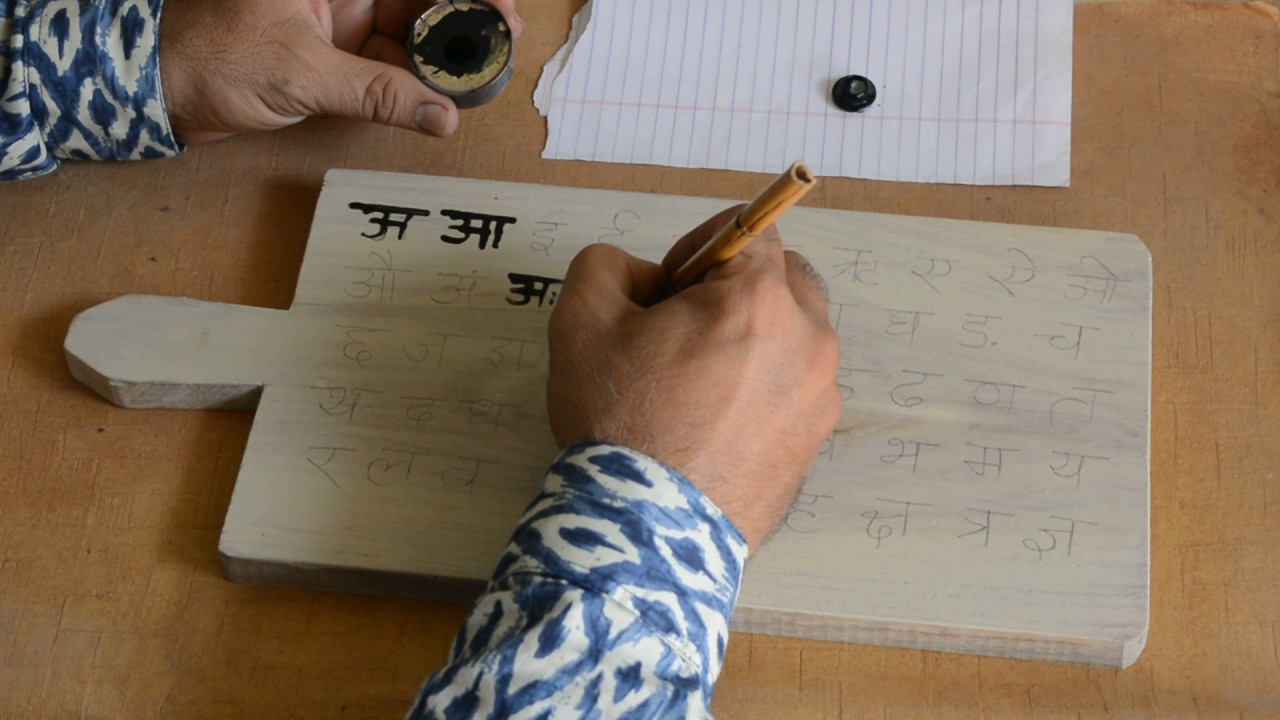 अ आ इ ई ऋ ए ऐ ओ
औ अं अः घ ङ च
छ ज झ ढ ण त
थ द ध भ म य
र ल व ह क्ष त्र ज्ञ